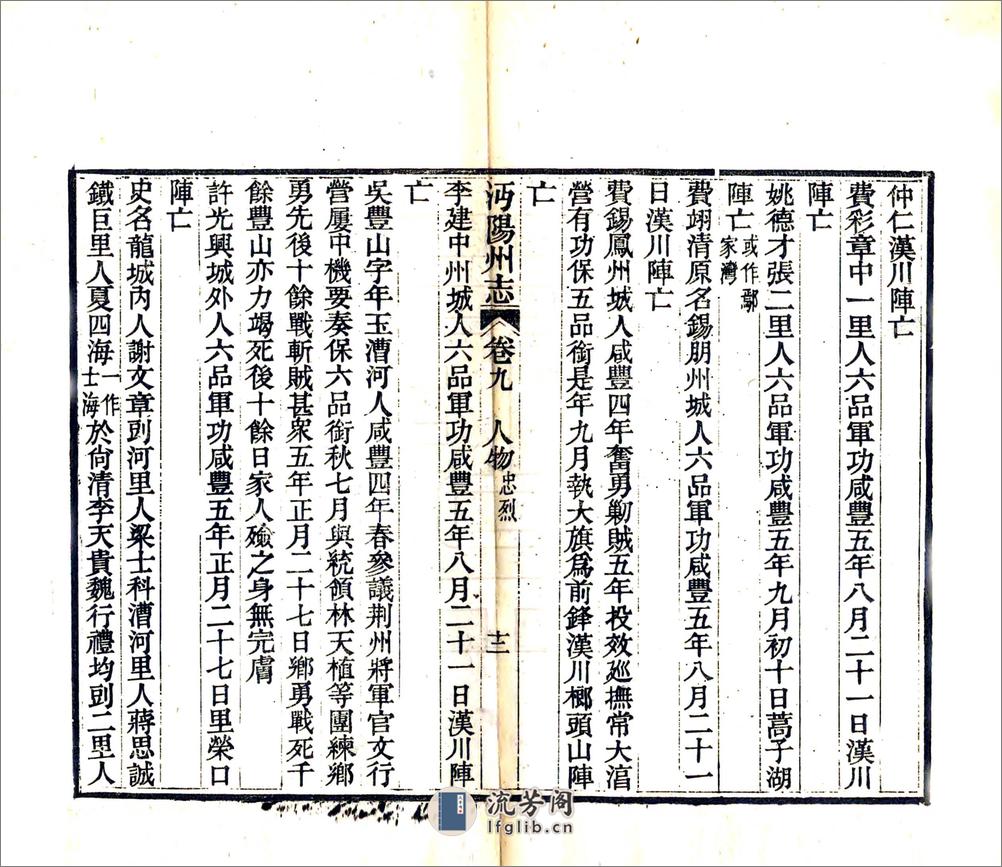 仲仁漢川陣亡
費彩章中一里人六品軍功咸豐五年八月二十一日漢川
陣亡
姚德才張二里人六品軍功咸豐五年九月初十日蒿子湖
陣亡或作鄢家灣
費翊清原名錫朋州城人六品軍功咸豐五年八月二十一
日漢川陣亡
費錫鳳州城人咸豐四年奮勇剿賊五年投效廵撫常大淯
營有功保五品銜是年九月執大旗爲前鋒漢川榔頭山陣
亡
沔陽州志 卷九 人物忠烈 十二
李建中州城人六品軍功咸豐五年八月二十一日漢川陣
亡
吳豐山字年玉漕河人咸豐四年春參議荆州將軍官文行
營屢中機要奏保六品銜秋七月與統領林天植等團練鄉
勇先後十餘戰斬賊甚衆五年正月二十七日鄉勇戰死千
餘豐山亦力竭死後十餘日家人殮之身無完膚
許光興城外人六品軍功咸豐五年正月二十七日里榮口
陣亡
史名龍城內人謝文章剅河里人梁士科漕河里人蔣思誠
鐵巨里人夏四海一作士海於尙清李天貴魏行禮均剅二里人
流芳阁
lfglib.cn